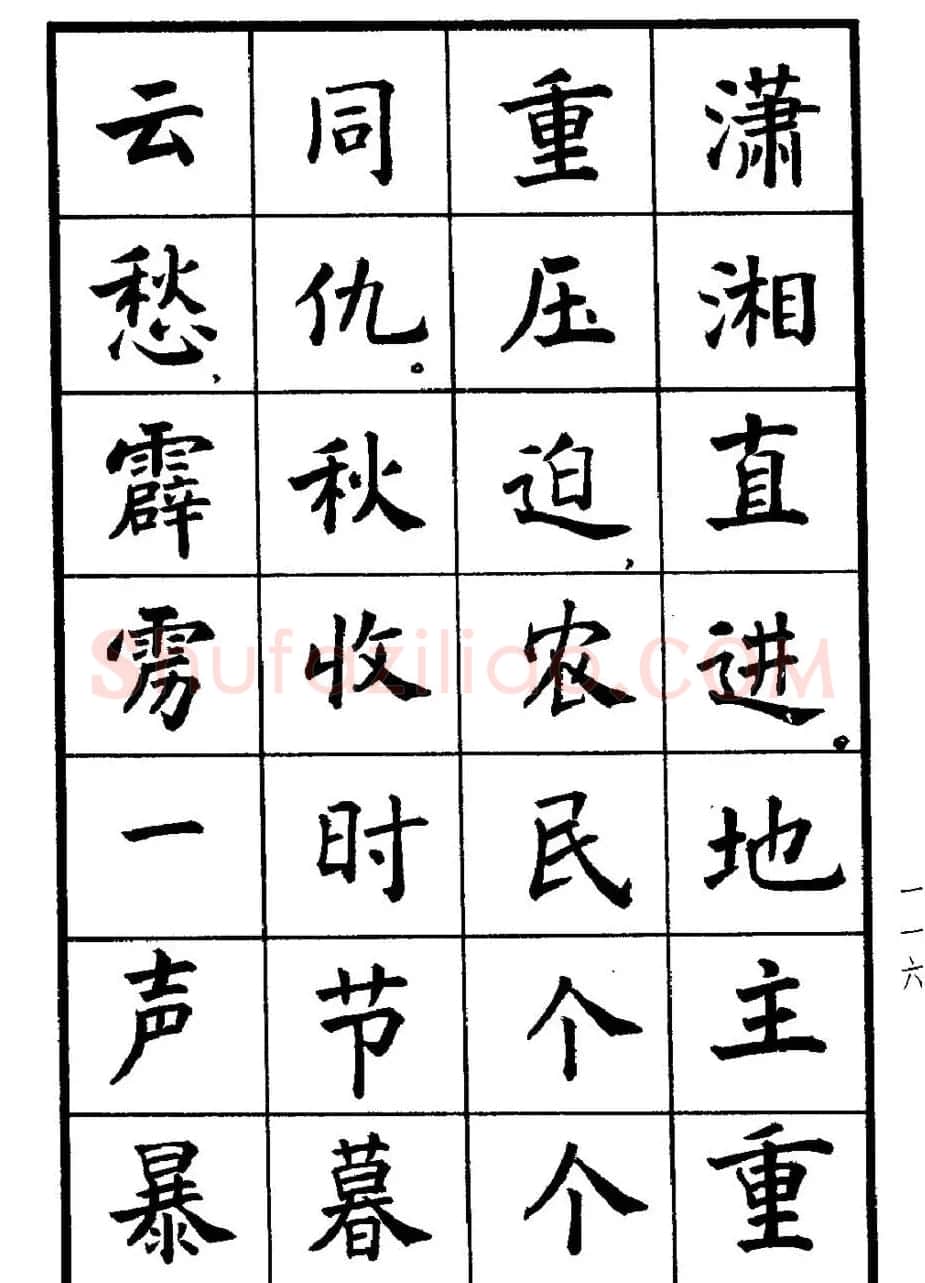 潇湘直进。地主重
重压迫，农民个个
同仇。秋收时节暮
云愁，霹雳一声暴
一一六
Shufaziliao.COM